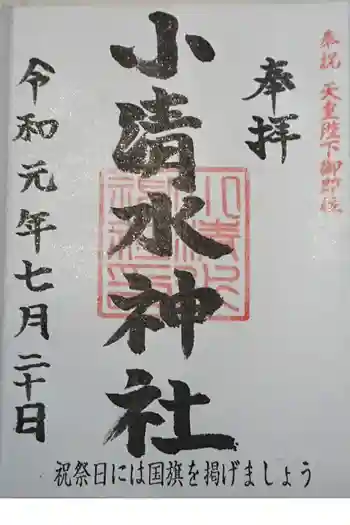 奉祝 天皇陛下御即位
奉拝
小清水神社
令和元年七月二十日
祝祭日には国旗を掲げましょう